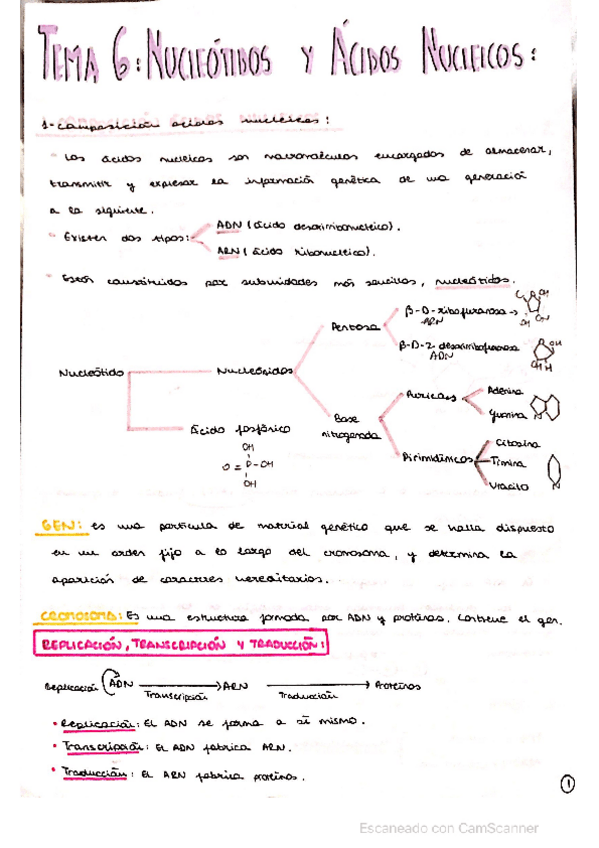 TEMA 6: NUCLEÓTIDOS Y ÁCIDOS NUCLEICOS:
1-composición ácidos nucleicos:
Los ácidos nucleicos son macromoléculas encargadas de almacenar,
transmitir y expresar la información genética de una generación
a la siguiente.
Existen dos tipos:
ADN (ácido desoxirribonucleico).
ARN (ácido ribonucleico).
Están constituidos por subunidades más sencillas, nucleótidos.
Nucleótido
Nucleósidos
Pentosa
β-D-ribofuranosa →
ARN
β-D-2-desoxirribofuranosa
ADN
Base
nitrogenada
Púricas
Adenina
Guanina
Pirimidínicos
Citosina
Timina
Uracilo
Ácido fosfórico
OH
O=P-OH
OH
GEN: es una partícula de material genético que se halla dispuesto
en un orden fijo a lo largo del cromosoma, y determina la
aparición de caracteres hereditarios.
CROMOSOMA: Es una estructura formada por ADN y proteínas. Contiene el gen.
REPLICACIÓN, TRANSCRIPCIÓN Y TRADUCCIÓN:
Replicación ADN → ARN → Proteínas
Transcripción Traducción
• Replicación: El ADN se forma a sí mismo.
• Transcripción: El ADN fabrica ARN.
• Traducción: El ARN fabrica proteínas.
1
Escaneado con CamScanner